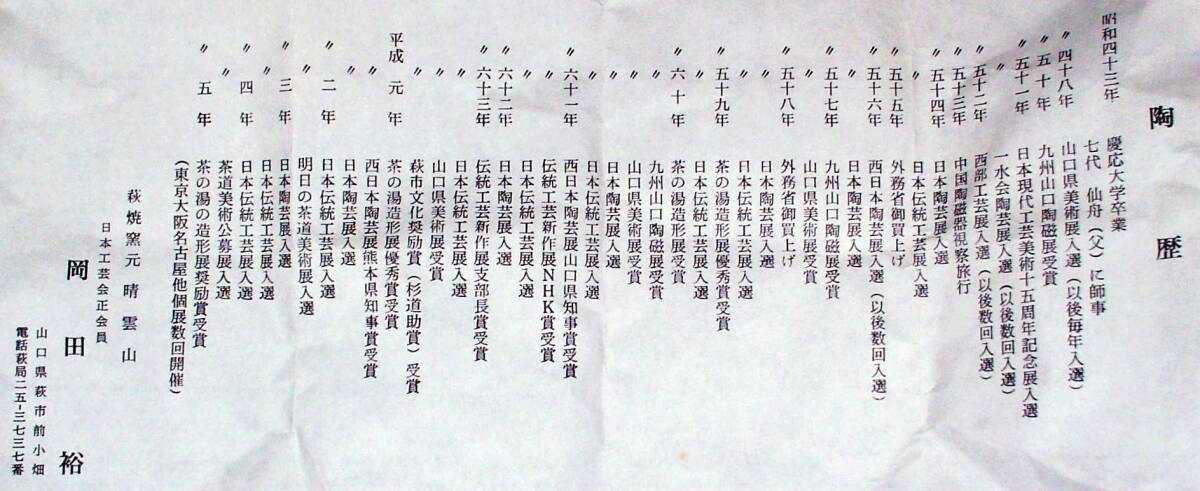 陶歴
昭和四十三年 慶応大学卒業
七代 仙舟（父）に師事
〃 四十八年 山口県美術展入選（以後毎年入選）
〃 五十年 九州山口陶磁展受賞
〃 五十一年 日本現代工芸美術十五周年記念展入選
〃 一水会陶芸展入選（以後数回入選）
〃 五十二年 西部工芸展入選（以後数回入選）
〃 五十三年 中国陶磁器視察旅行
〃 五十四年 日本陶芸展入選
〃 日本伝統工芸展入選
〃 五十五年 外務省御買上げ
〃 五十六年 西日本陶芸展入選（以後数回入選）
〃 日本陶芸展入選
〃 五十七年 九州山口陶磁展受賞
〃 山口県美術展受賞
〃 五十八年 外務省御買上げ
〃 日本陶芸展入選
〃 日本伝統工芸展入選
〃 五十九年 茶の湯造形展優秀賞受賞
〃 日本伝統工芸展入選
〃 六十年 茶の湯造形展受賞
〃 九州山口陶磁展受賞
〃 山口県美術展受賞
〃 日本陶芸展入選
〃 日本伝統工芸展入選
〃 六十一年 西日本陶芸展山口県知事賞受賞
〃 伝統工芸新作展NHK賞受賞
〃 日本伝統工芸展入選
〃 六十二年 日本陶芸展入選
〃 六十三年 伝統工芸新作展支部長賞受賞
〃 日本伝統工芸展入選
〃 山口県美術展受賞
〃 萩市文化奨励賞（杉道助賞）受賞
平成元年 茶の湯造形展優秀賞受賞
〃 西日本陶芸展熊本県知事賞受賞
〃 日本陶芸展入選
〃 二年 日本伝統工芸展入選
明日の茶道美術展入選
〃 三年 日本陶芸展入選
〃 日本伝統工芸展入選
〃 四年 日本伝統工芸展入選
〃 茶道美術公募展入選
〃 五年 茶の湯の造形展奨励賞受賞
（東京大阪名古屋他個展数回開催）
萩焼窯元晴雲山
日本工芸会正会員
岡田裕
山口県萩市前小畑
電話萩局二五-三七三七番